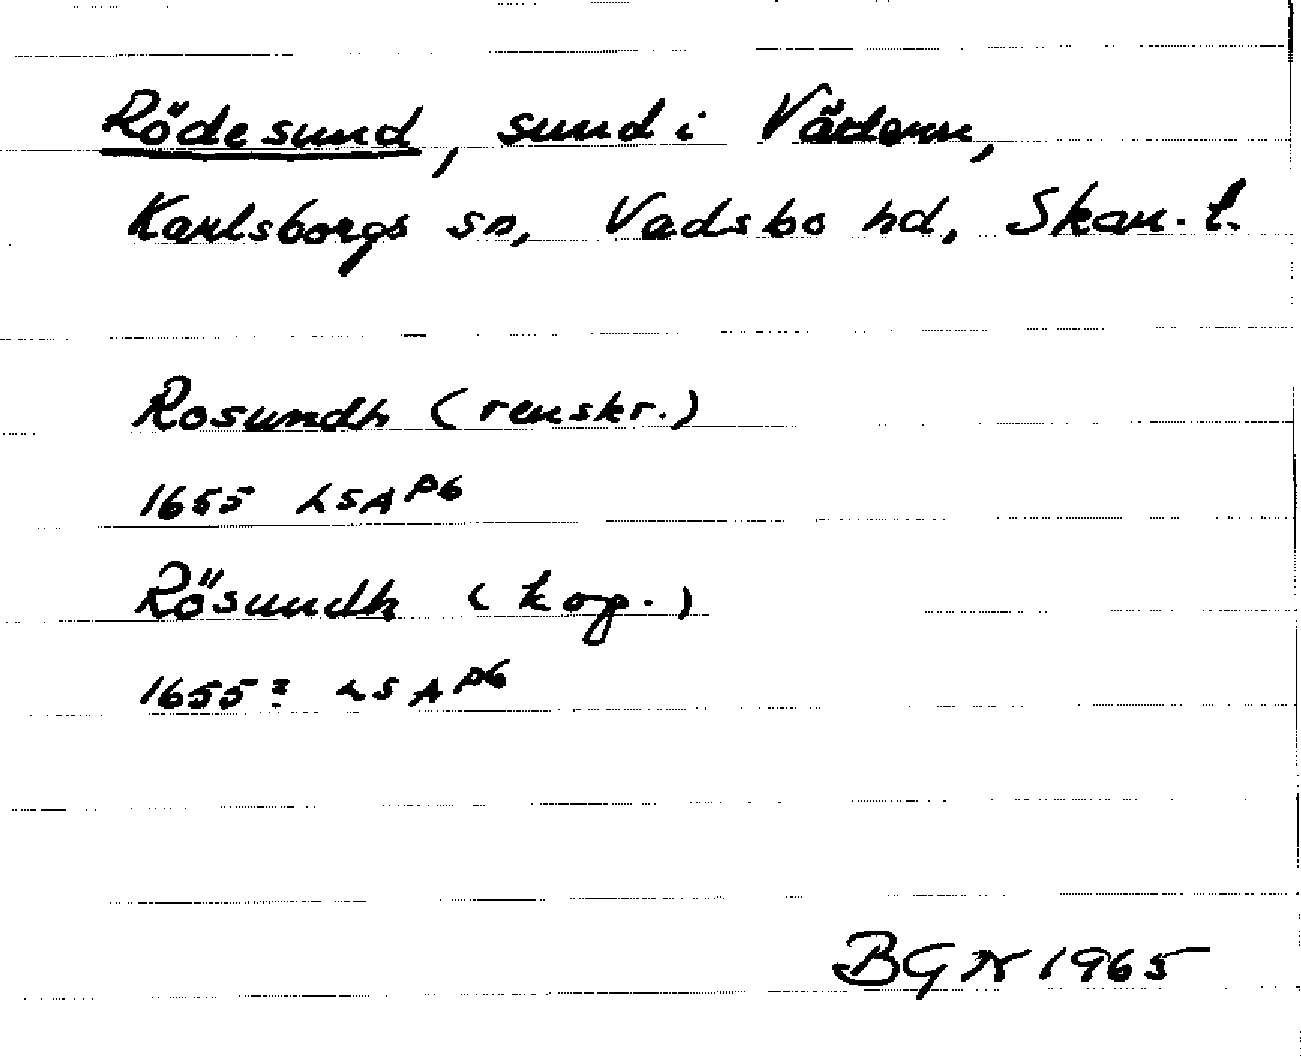 Rödesund, sund i Vättern,
Karlsborgs sn, Vadsbo hd, Skar. l.
Rosundh (renskr.)
1655 LSA P6
Rösundh (kop.)
1655? LSA P6
BGN 1965